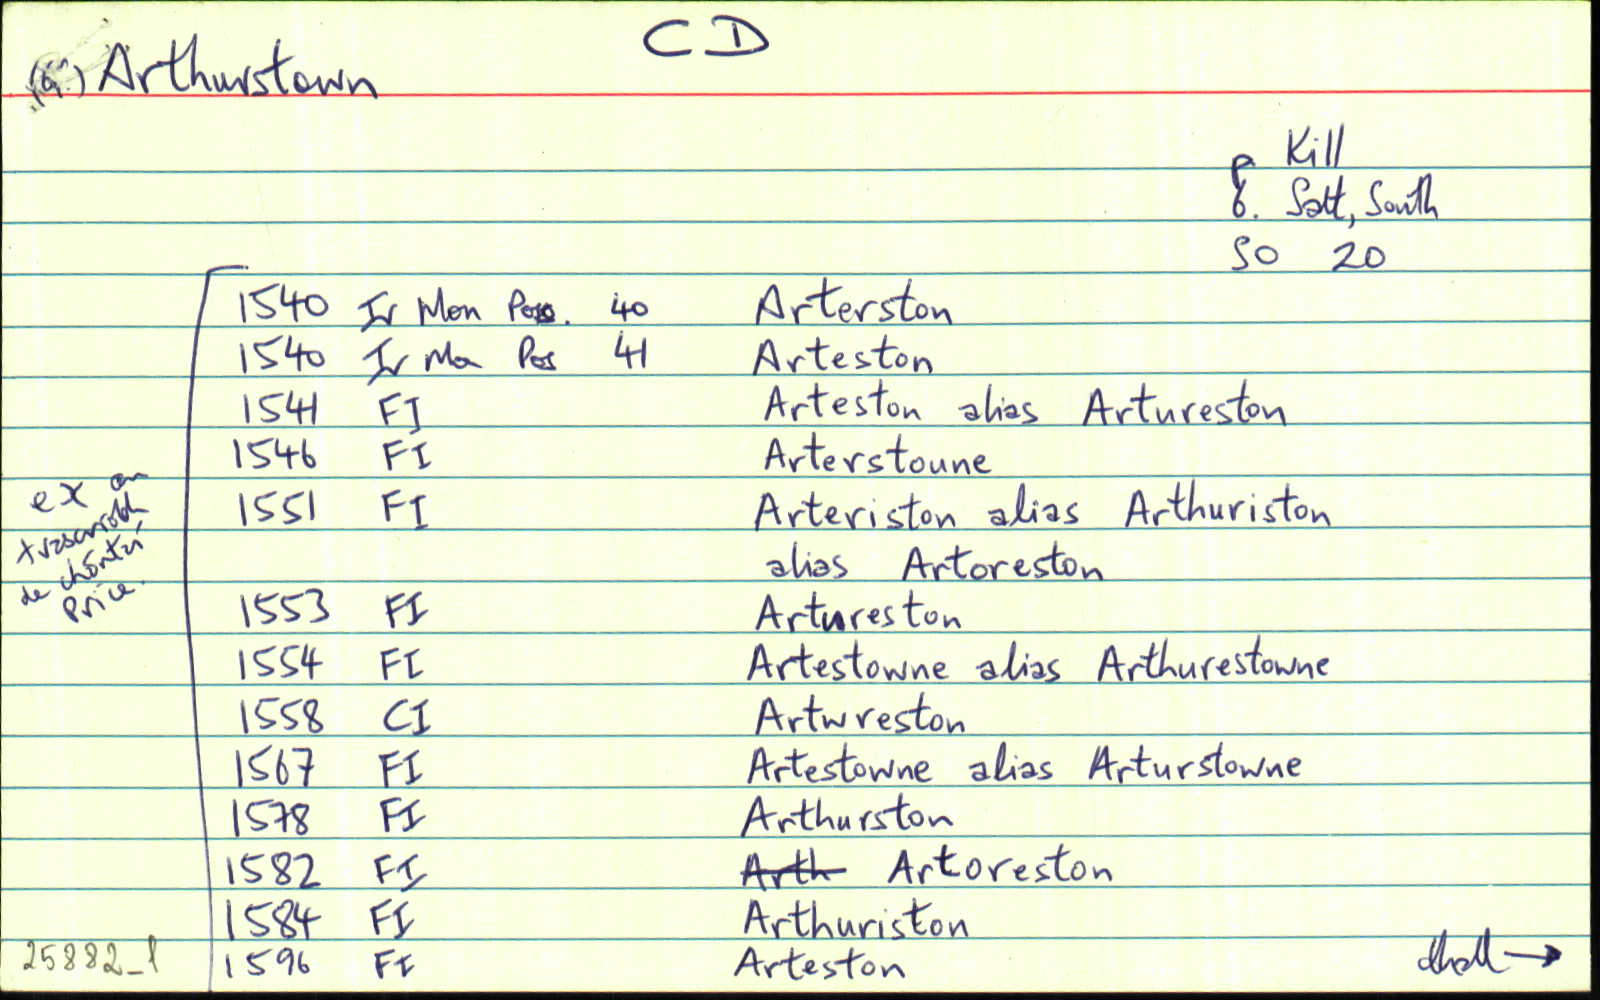 CD
Arthurstown
p Kill
b. Salt, South
SO 20
1540 Ir Mon Poss. 40 Arterston
1540 Ir Mon Pos 41 Arteston
1541 FI Arteston alias Artureston
1546 FI Arterstoune
1551 FI Arteriston alias Arthuriston
alias Artoreston
1553 FI Artureston
1554 FI Artestowne alias Arthurestowne
1558 CI Artwreston
1567 FI Artestowne alias Arturstowne
1578 FI Arthurston
1582 FI Arth Artoreston
1584 FI Arthuriston
1596 FI Arteston
ex an
de chóntaí
Price.
25882_1
thall →